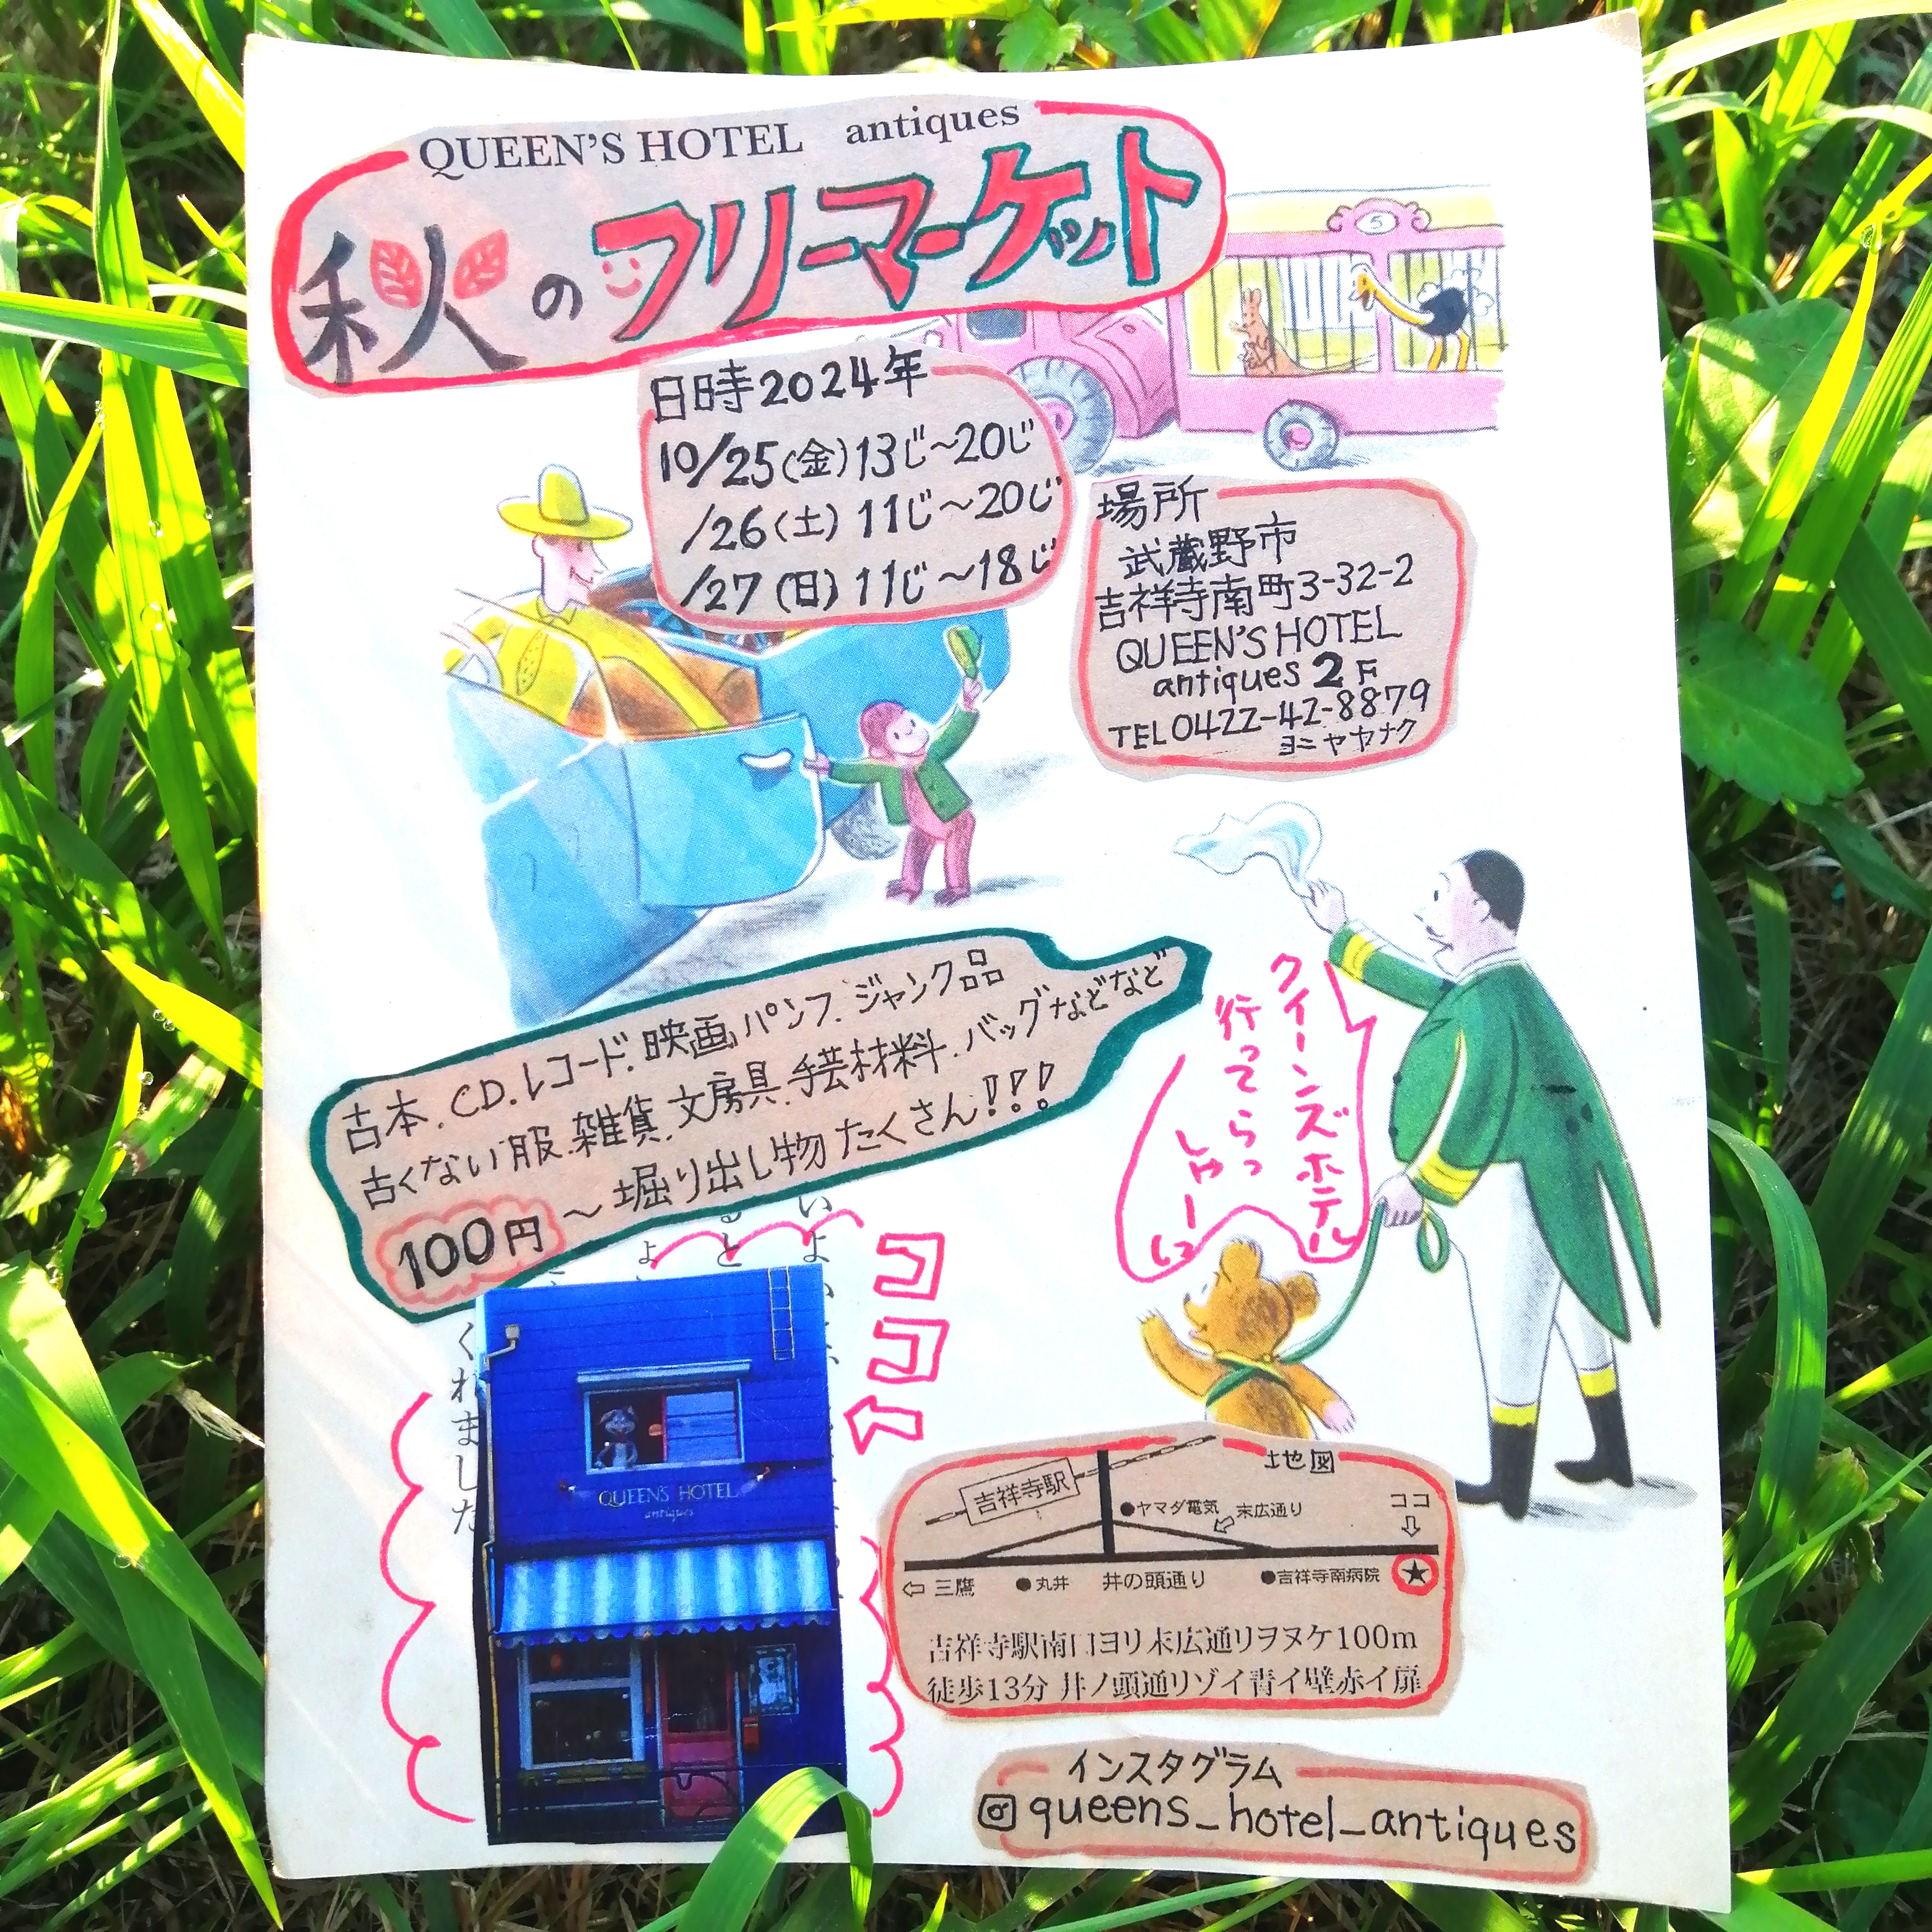 QUEEN'S HOTEL antiques
秋のフリーマーケット
5
日時2024年
10/25(金)13じ〜20じ
/26(土)11じ〜20じ
/27(日)11じ〜18じ
場所
武蔵野市
吉祥寺南町3-32-2
QUEEN'S HOTEL
antiques 2F
TEL0422-42-8879
ヨニヤヤナク
古本.CD.レコード.映画パンフ.ジャンク品
古くない服.雑貨.文房具.手芸材料.バッグなどなど
100円〜堀り出し物たくさん!!!
クイーンズホテル
行ってらっ
しゃーい
ココ
くれました
QUEEN'S HOTEL
antiques
地図
吉祥寺駅
●ヤマダ電気
末広通り
ココ
⇩
⇦三鷹 ●丸井 井の頭通り ●吉祥寺南病院 ★
吉祥寺駅南口ヨリ末広通リヲヌケ100m
徒歩13分 井ノ頭通リゾイ青イ壁赤イ扉
インスタグラム
queens_hotel_antiques